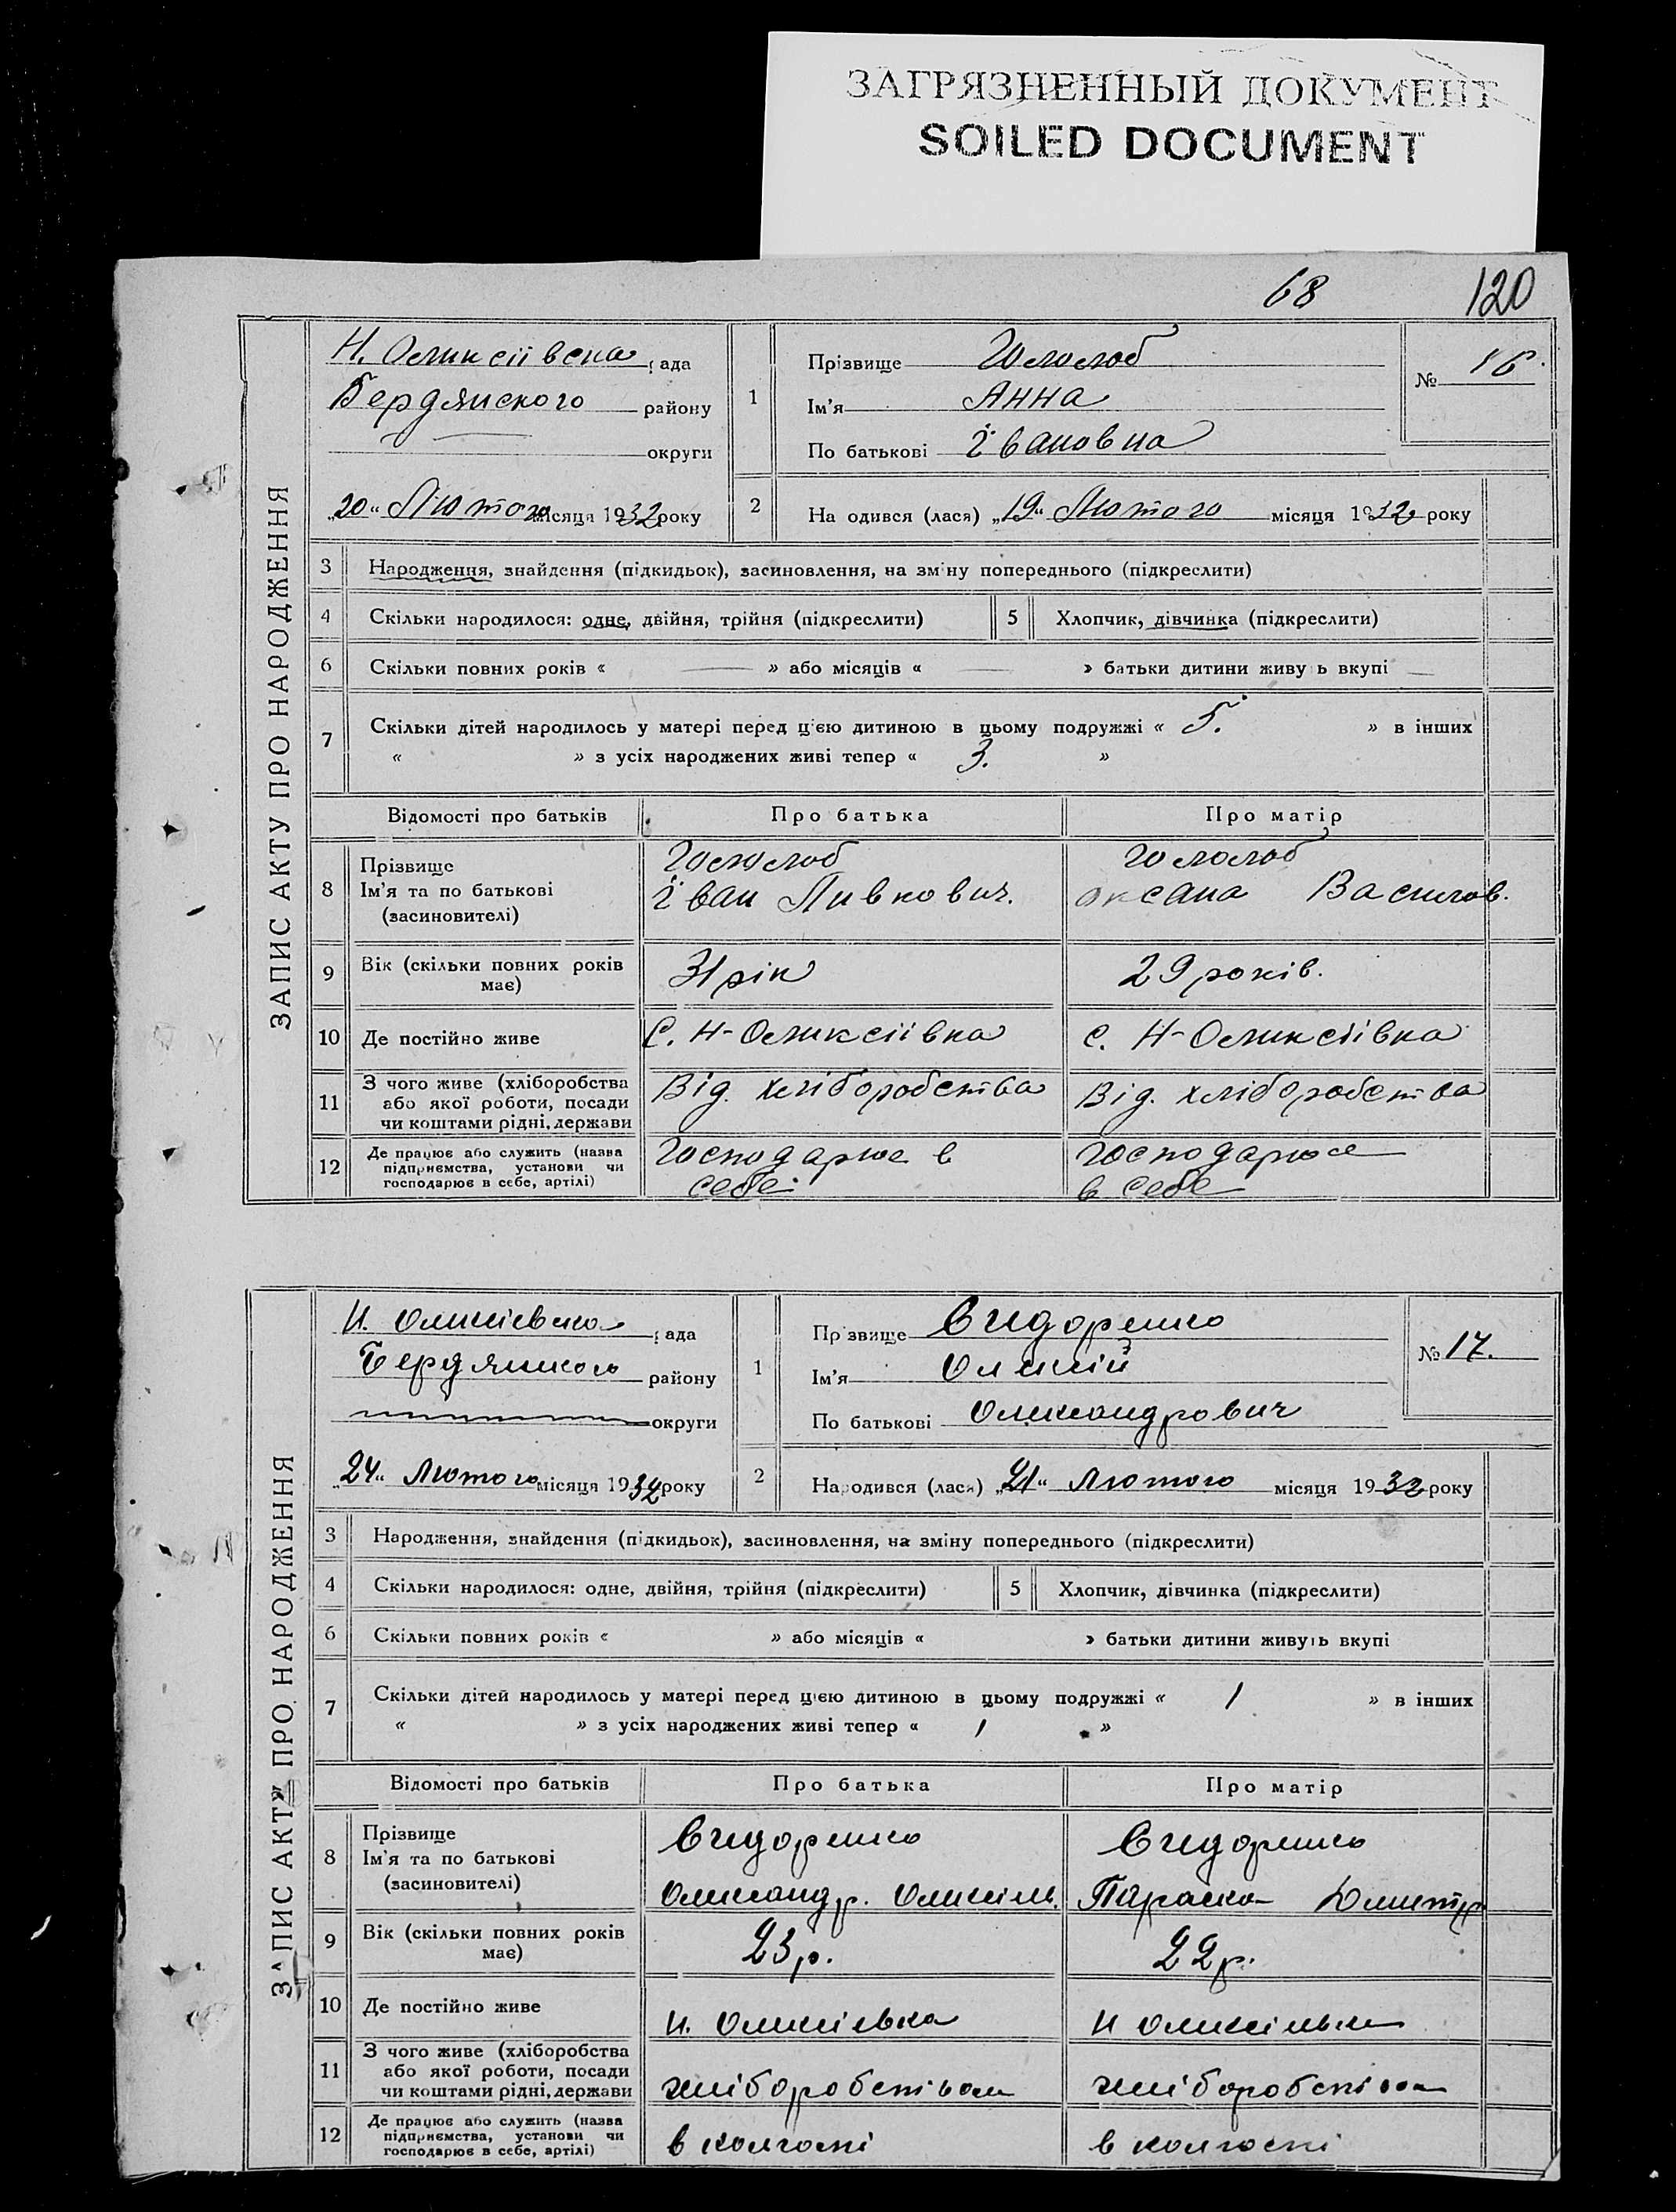 ЗАГРЯЗНЕННЫЙ ДОКУМЕНТ
SOILED DOCUMENT
68 120
ЗАПИС АКТУ ПРО НАРОДЖЕННЯ
Н. Олексіївська рада
Бердянского району
округи
„20“ Лютого місяця 1932 року
1
Прізвище Гололоб
Ім'я Анна
По батькові Івановна
№ 16.
2
Народився (лася) „19“ Лютого місяця 1932 року
3 Народження, знайдення (підкидьок), засиновлення, на зміну попереднього (підкреслити)
4 Скільки народилося: одне, двійня, трійня (підкреслити) 5 Хлопчик, дівчинка (підкреслити)
6 Скільки повних років « — » або місяців « — » батьки дитини живуть вкупі —
7 Скільки дітей народилось у матері перед цією дитиною в цьому подружжі « 5. » в інших
« » з усіх народжених живі тепер « 3. »
Відомості про батьків Про батька Про матір
8 Прізвище Гололоб Гололоб
Ім'я та по батькові Іван Оксана Василов.
(засиновителі)
9 Вік (скільки повних років 31 рік 29 років.
має)
10 Де постійно живе С. Н-Олексіївка С. Н-Олексіївка
11 З чого живе (хліборобства Від. хліборобства Від. хліборобства
або якої роботи, посади
чи коштами рідні, держави
12 Де працює або служить (назва Господарює в Господарює
підприємства, установи чи себе. в себе
господарює в себе, артілі)
ЗАПИС АКТУ ПРО НАРОДЖЕННЯ
Н. Олексіевська рада
Бердянського району
округи
„24“ Лютого місяця 1932 року
1
Прізвище Сидоренко
Ім'я Олексій
По батькові Олександрович
№ 17.
2
Народився (лася) „21“ Лютого місяця 1932 року
3 Народження, знайдення (підкидьок), засиновлення, на зміну попереднього (підкреслити)
4 Скільки народилося: одне, двійня, трійня (підкреслити) 5 Хлопчик, дівчинка (підкреслити)
6 Скільки повних років « » або місяців « » батьки дитини живуть вкупі
7 Скільки дітей народилось у матері перед цією дитиною в цьому подружжі « 1 » в інших
« » з усіх народжених живі тепер « 1 »
Відомості про батьків Про батька Про матір
8 Прізвище Сидоренко Сидоренко
Ім'я та по батькові
(засиновителі) Олександр. Олексіів. Параска Дмитр
9 Вік (скільки повних років 23 р. 22 р.
має)
10 Де постійно живе Н. Олексіівка Н Олексіівка
11 З чого живе (хліборобства
або якої роботи, посади
чи коштами рідні, держави хліборобством хліборобством
12 Де працює або служить (назва
підприємства, установи чи в колгоспі в колгоспі
господарює в себе, артілі)